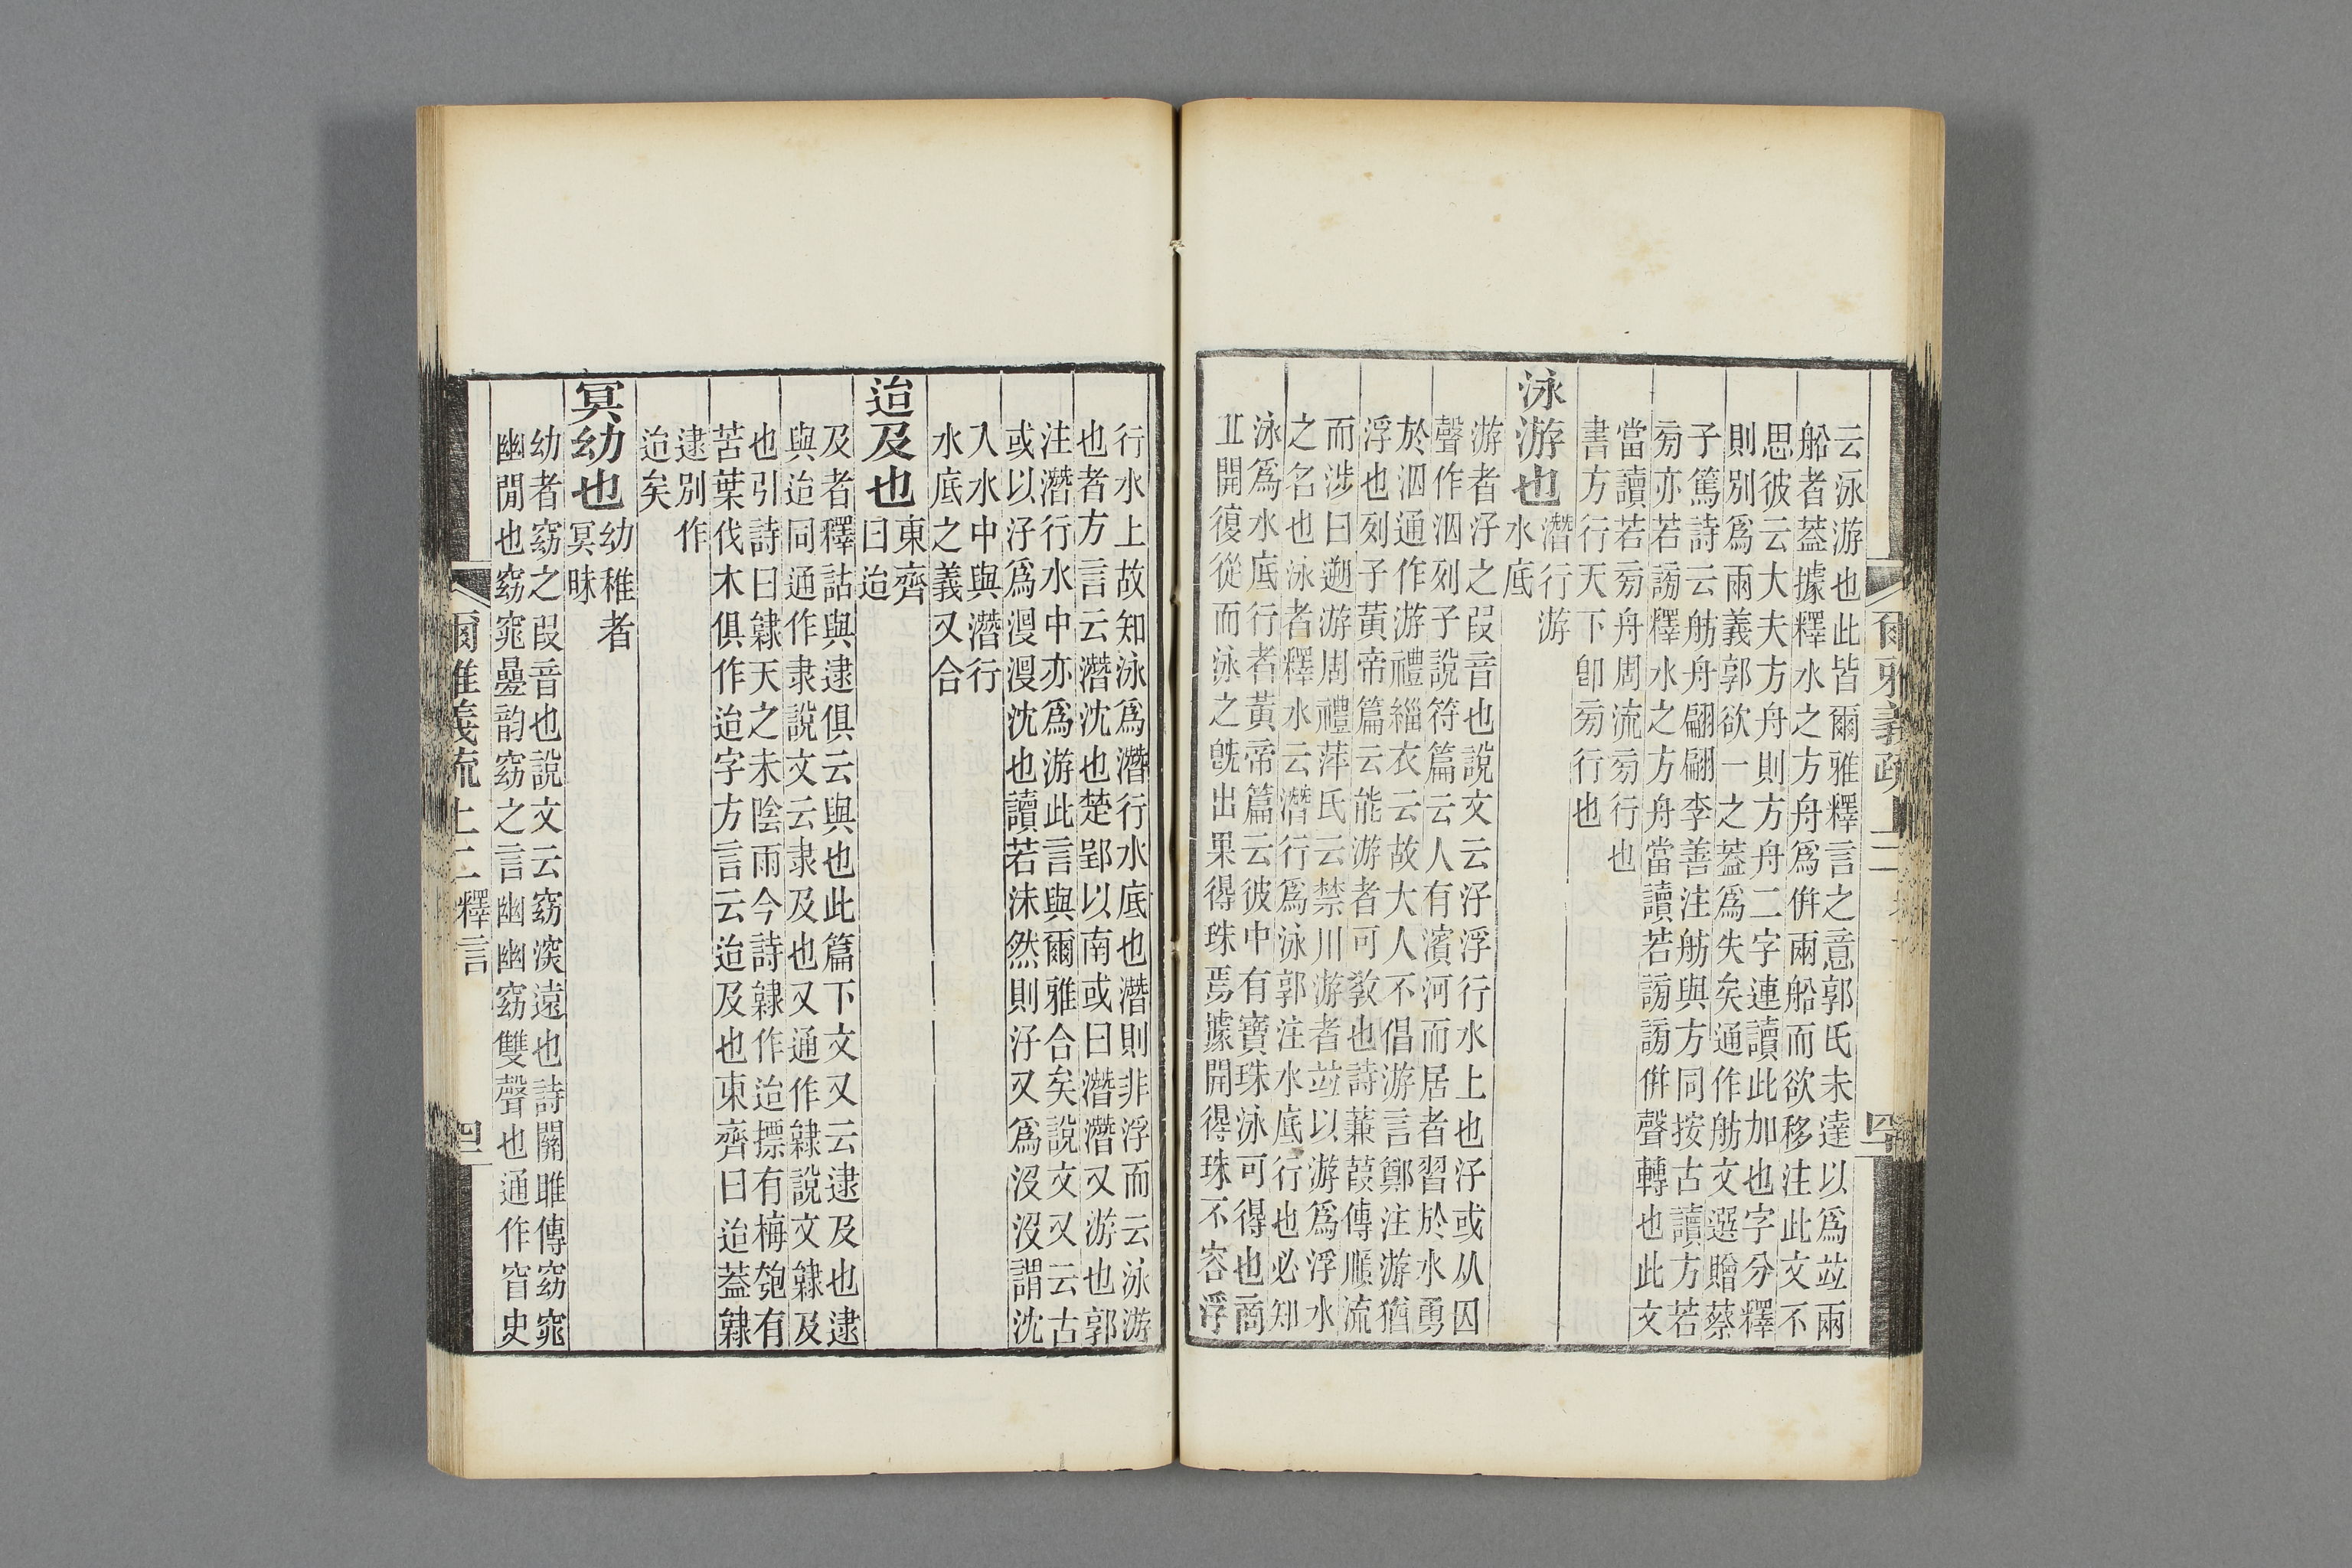 云泳游也此皆爾雅釋言之意郭氏未達以爲竝兩
船者葢據釋水之方舟爲倂兩船而欲移注此文不
思彼云大夫方舟則方舟二字連讀此加也字分釋
則別爲兩義郭欲一之葢爲失矣通作舫文選贈蔡
子篤詩云舫舟翩翩李善注舫與方同按古讀方若
㫄亦若謗釋水之方舟當讀若謗謗倂聲轉也此文
當讀若㫄舟周流㫄行也
書方行天下卽㫄行也
泳游也
潛行游
水底
游者汓之叚音也說文云汓浮行水上也汓或从囚
聲作泅列子說符篇云人有濱河而居者習於水勇
於泅通作游禮緇衣云故大人不倡游言鄭注游猶
浮也列子黃帝篇云能游者可敎也詩蒹葭傳順流
而涉曰遡游周禮萍氏云禁川游者竝以游爲浮水
之名也泳者釋水云潛行爲泳郭注水底行也必知
泳爲水底行者黃帝篇云彼中有寶珠泳可得也商
丘開復從而泳之旣出果得珠焉據開得珠不容浮
爾雅義疏 上二
行水上故知泳爲潛行水底也潛則非浮而云泳游
也者方言云潛沈也楚郢以南或曰潛潛又游也郭
注潛行水中亦爲游此言與爾雅合矣說文又云古
或以汓爲沒沒沈也讀若沬然則汓又爲沒沒謂沈
入水中與潛行
水底之義又合
迨及也
東齊
曰迨
及者釋詁與逮俱云與也此篇下文又云逮及也逮
與迨同通作隶說文云隶及也又通作隸說文隸及
也引詩曰隸天之未陰雨今詩隸作迨摽有梅匏有
苦葉伐木俱作迨字方言云迨及也東齊曰迨葢隸
逮別作
迨矣
冥幼也
幼稚者
冥昧
幼者窈之叚音也說文云窈深遠也詩關雎傳窈窕
幽閒也窈窕疊韵窈之言幽幽窈雙聲也通作窅史
爾雅義疏 上二 釋言